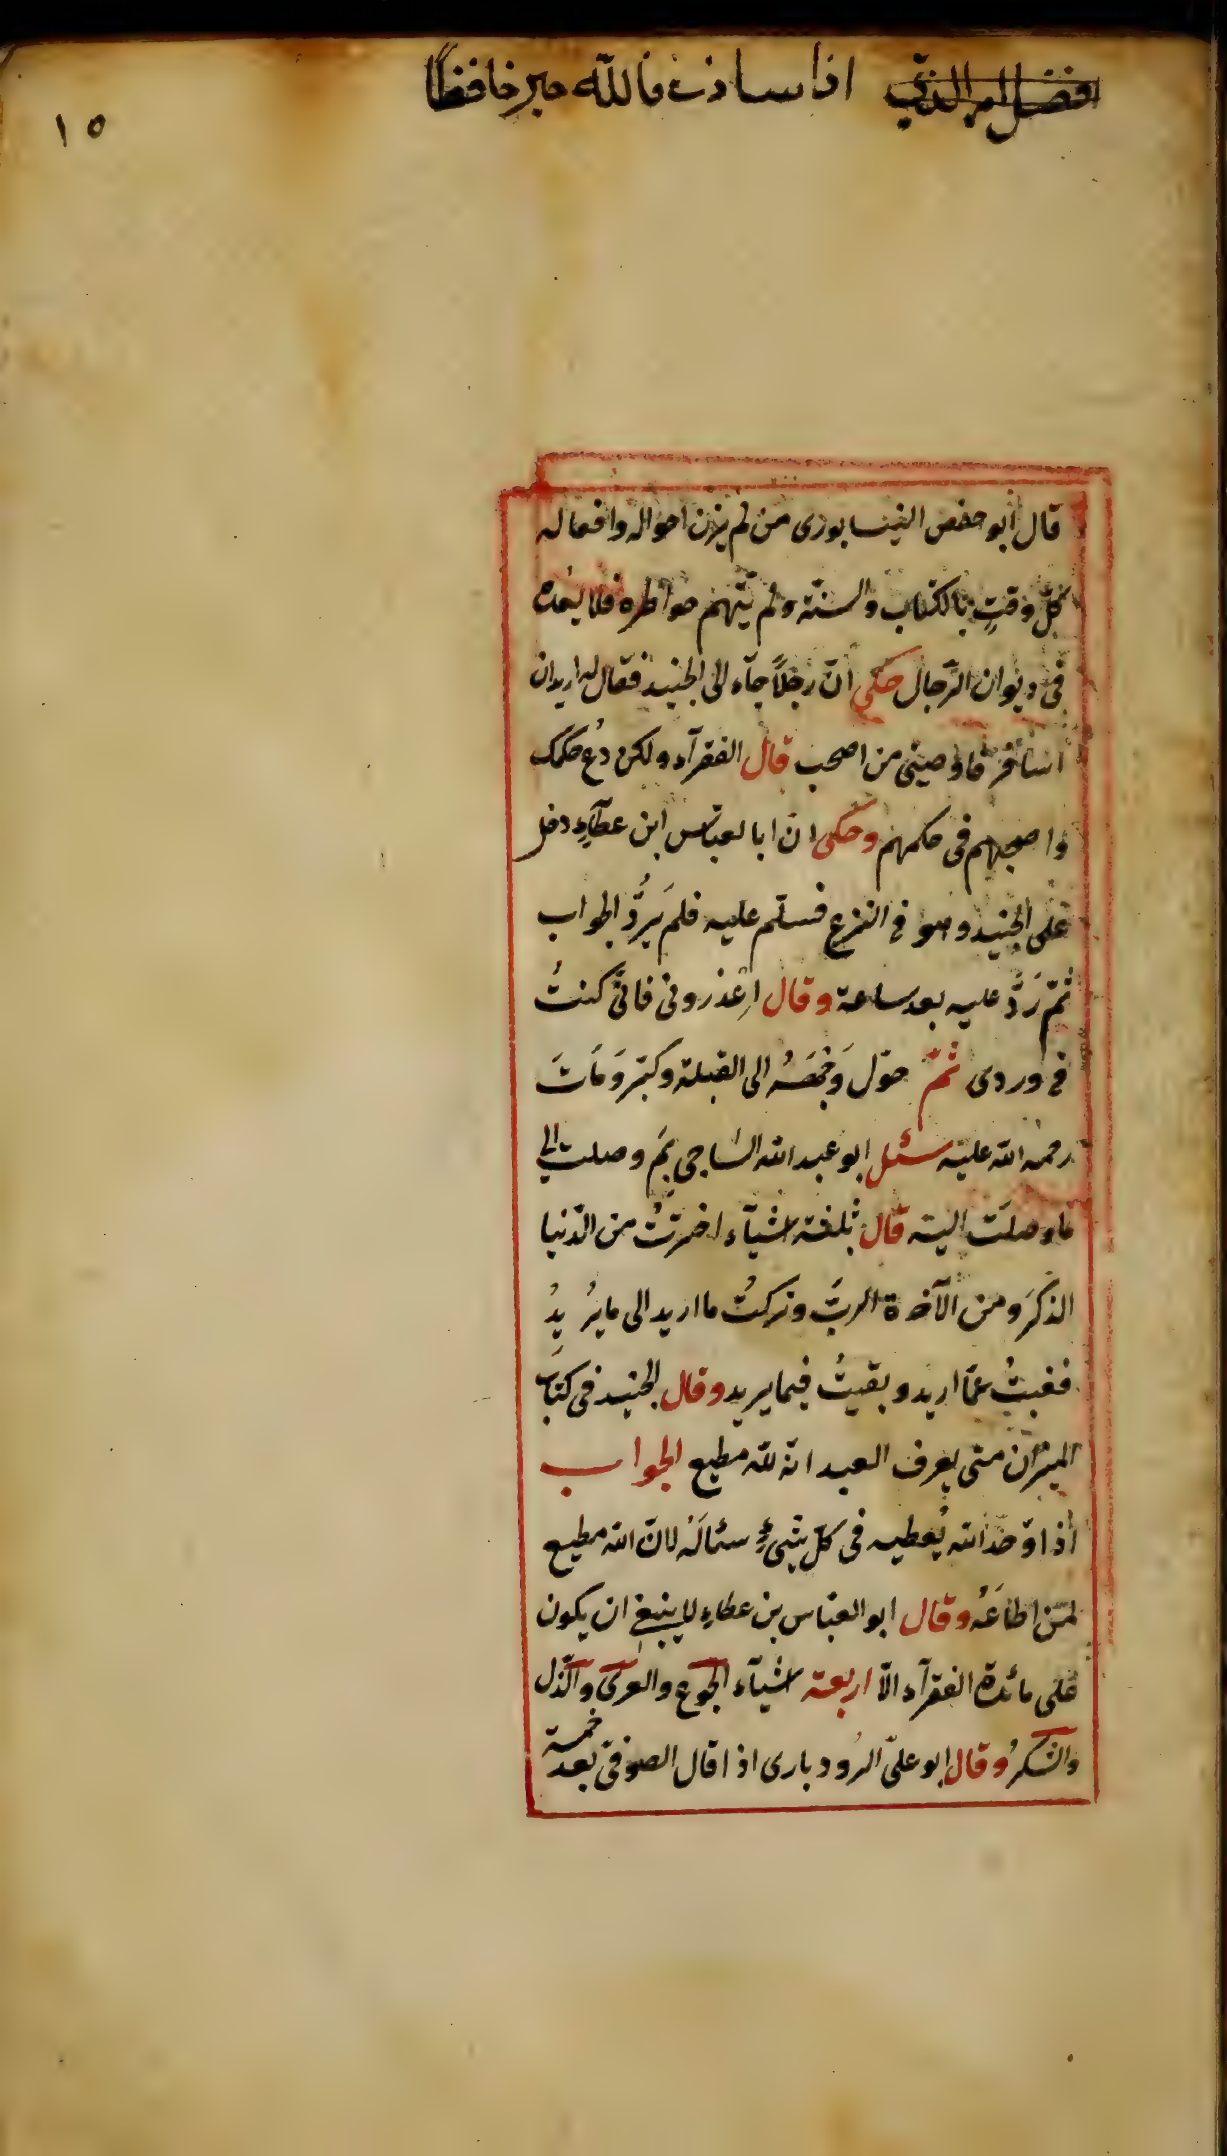 اذا سافرت فالله خير حافظًا
١٥
قال أبو حفص النيسابورى من لم يزن احواله وافعاله
كلّ وقتٍ بالكتاب والسنّة ولم يتّهم خواطره فلا يعدّ
فى ديوان الرّجال حكى انّ رجلاً جآء الى الجنيد فقال له اريد ان
اسافر فاوصينى من اصحب قال الفقرآء ولكن دع حكمك
واصحبهم فى حكمهم وحكى انّ ابا لعبّاس ابن عطآءٍ دخل
على الجنيد وهو فى النزع فسلّم عليه فلم يَرُدّ الجواب
ثمّ رَدَّ عليه بعد ساعة وقال اِعذرونى فانّى كنتُ
فى وردى ثمّ حوّل وَجْهَهُ الى القبلة وكبّر وَمَاتَ
رحمه الله عليه سئل ابو عبد الله الساجى بِمَ وصلت الى
ما وصلَت اليه قال بثلثة اشيآء اخترتُ من الدّنيا
الذكرَ ومن الآخرة الربَّ وتركتُ ما اريد الى ما يُرِيدُ
فغبتُ عمّا اريد وبقيتُ فيما يريد وقال الجنيد فى كتاب
الميزان متى يعرف العبد انّه لله مطيع الجواب
اذا وجد الله يُعطيه فى كلّ شىءٍ سئالَهُ لانّ الله مطيع
لمن اطاعَهُ وقال ابو العبّاس بن عطاءٍ لا ينبغى ان يكون
على مائدة الفقرآء الّا اربعة اشيآء الجوع والعرى والذّل
والشكرُ وقال ابو علىّ الرُّودبارى اذا قال الصوفىّ بعد خمسة